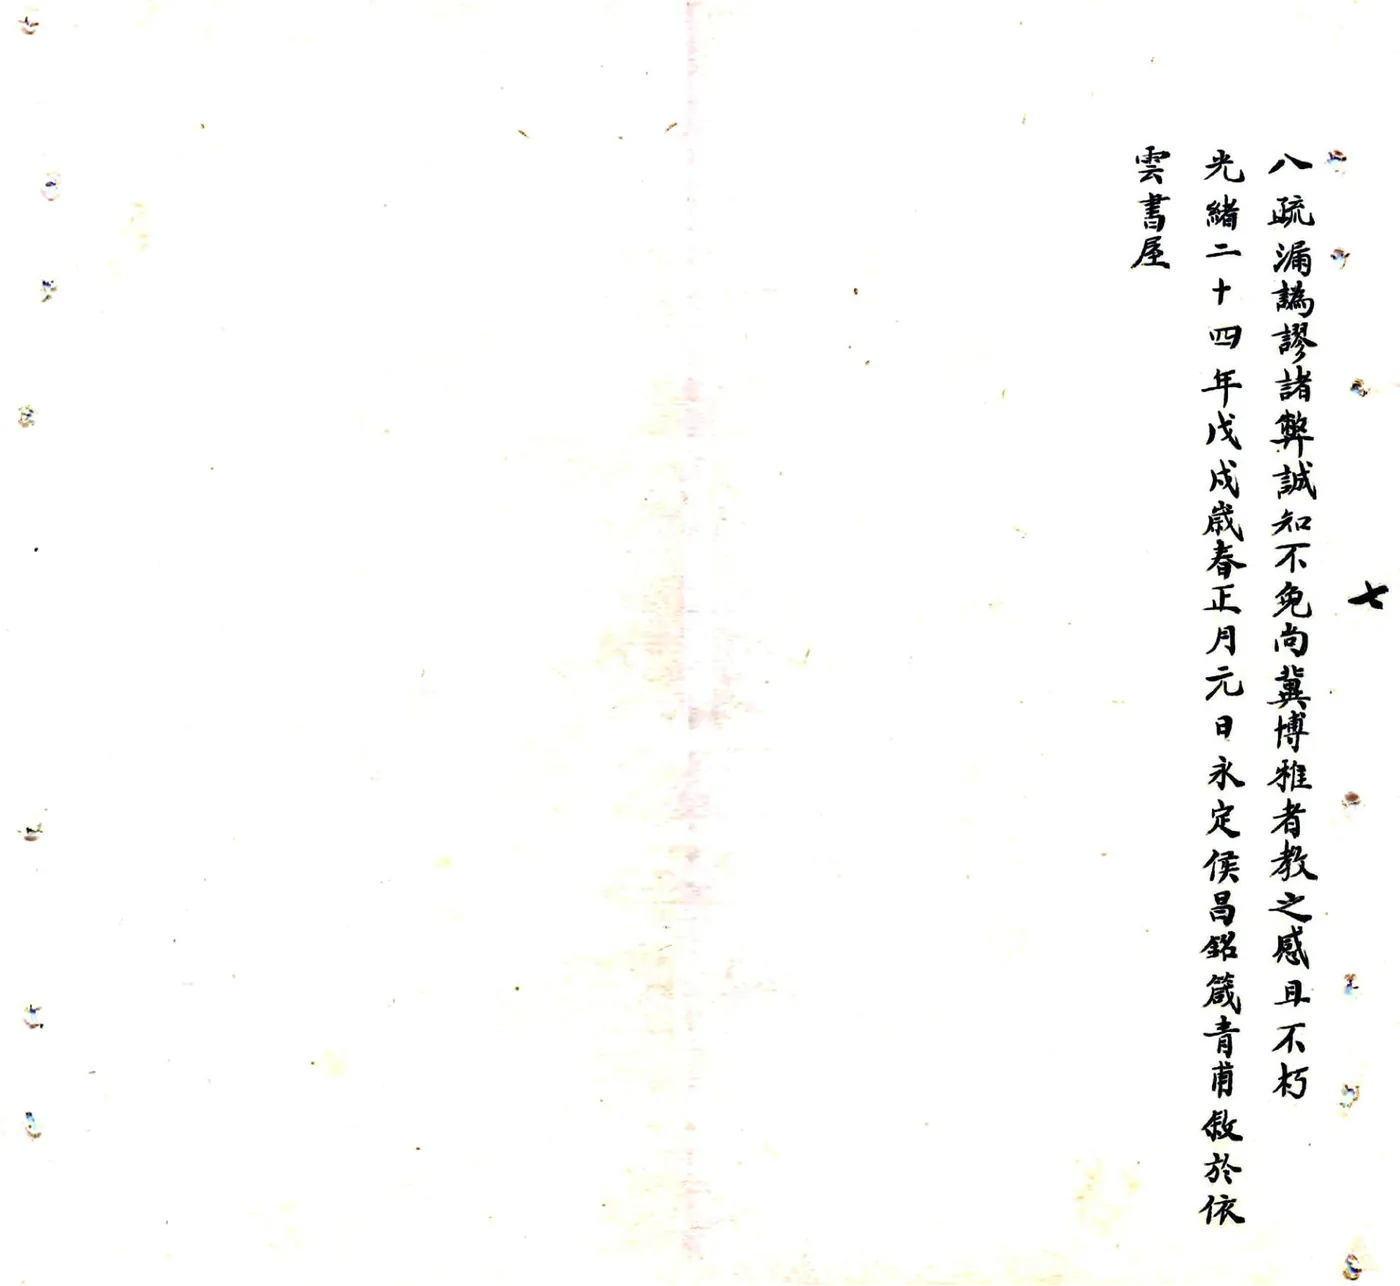 七
八疏漏譌謬諸弊誠知不免尚冀博雅者教之感且不朽
光緒二十四年戊戌歲春正月元日永定侯昌銘箴青甫敘於依
雲書屋